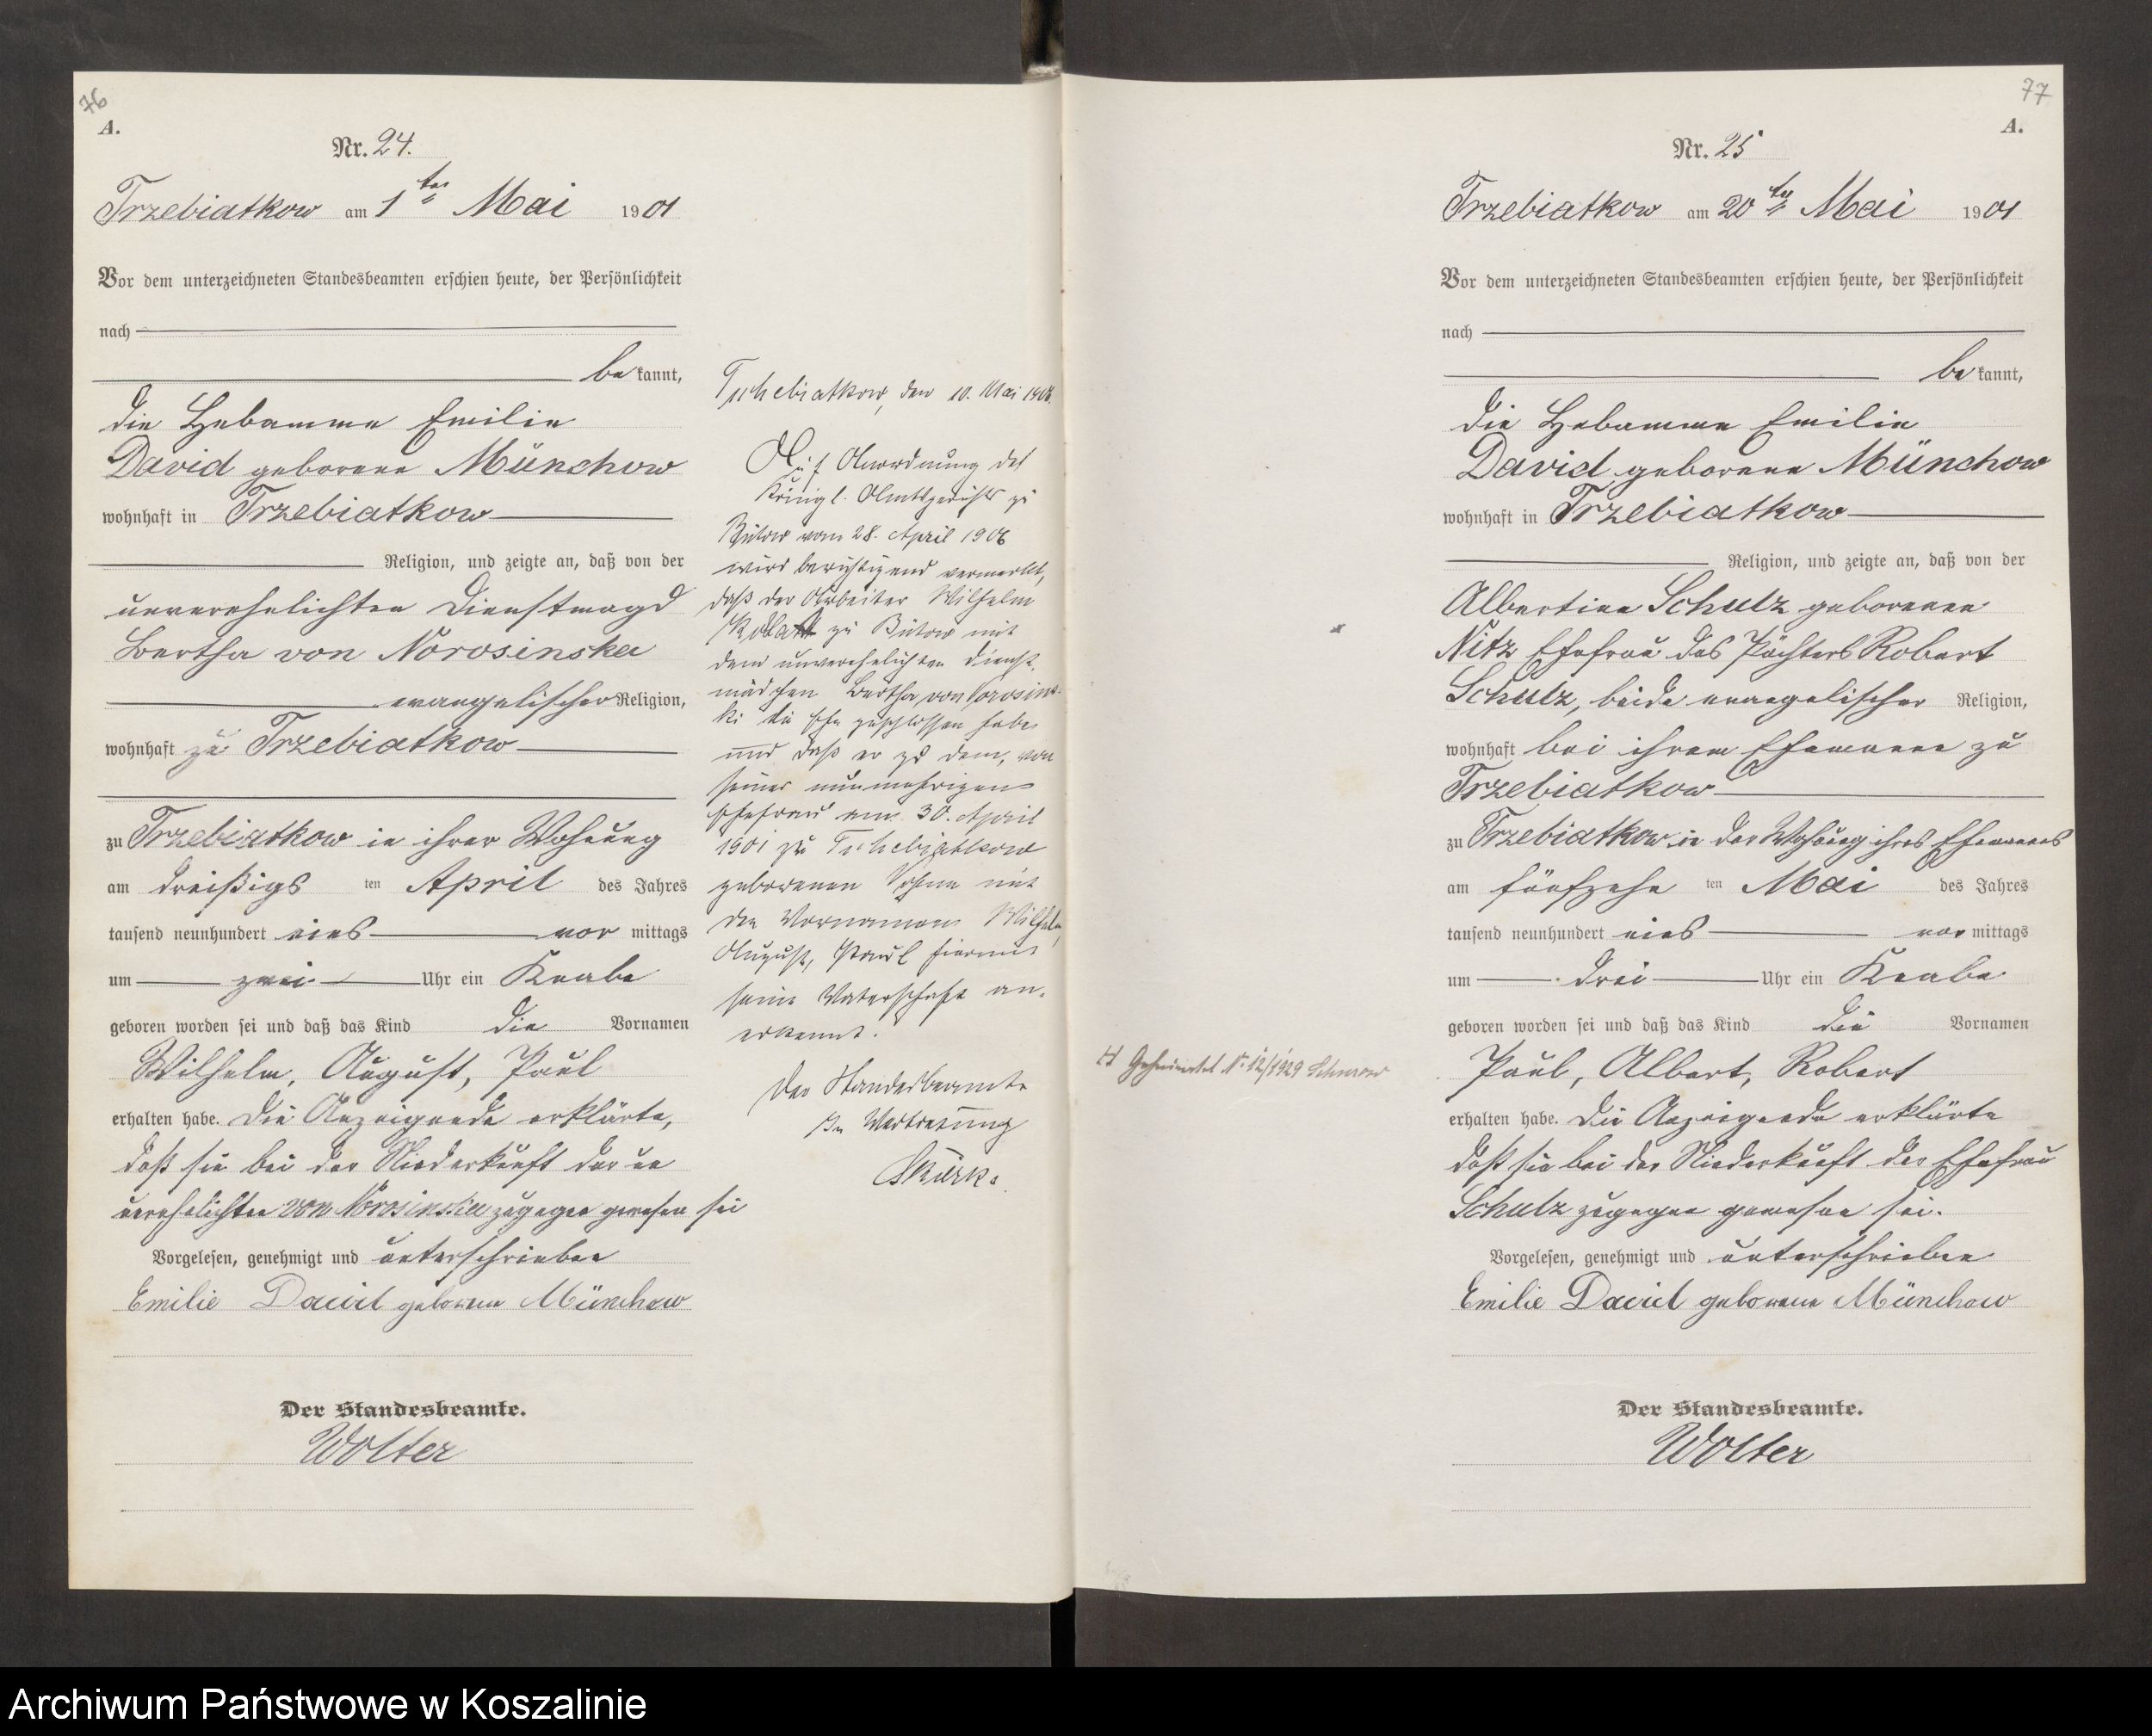 76
A.
Nr. 24.
Trzebiatkow am 1ten Mai 1901
Vor dem unterzeichneten Standesbeamten erschien heute, der Persönlichkeit
nach
bekannt,
die Hebamme Emilie
David geborene Münchow
wohnhaft in Trzebiatkow
Religion, und zeigte an, daß von der
unverehelichten Dienstmagd
Bertha von Norosinska
evangelischer Religion,
wohnhaft zu Trzebiatkow
zu Trzebiatkow in ihrer Wohnung
am dreißigs ten April des Jahres
tausend neunhundert eins vor mittags
um zwei Uhr ein Knabe
geboren worden sei und daß das Kind die Vornamen
Wilhelm, August, Paul
erhalten habe. Die Anzeigende erklärte,
daß sie bei der Niederkunft der un
verehelichten von Norosinska zugegen gewesen sei
Vorgelesen, genehmigt und unterschrieben
Emilie David geborene Münchow
Der Standesbeamte.
Wolter
Tschebiatkow, den 10. Mai 1906.
Auf Anordnung des
Königl. Amtsgerichts zu
Bütow vom 28. April 1906
wird berichtigend vermerkt,
daß der Arbeiter Wilhelm
zu Bütow mit
dem unverehelichten Dienst-
mädchen Bertha von Norosins-
ki die Ehe geschlossen habe
und daß er zu dem, von
seiner nunmehrigen
Ehefrau am 30. April
1901 zu Tschebiatkow
geborenen Sohne mit
den Vornamen Wilhelm,
August, Paul hiermit
seine Vaterschaft an-
erkennt.
Der Standesbeamte
In Vertretung
77
A.
Nr. 25
Trzebiatkow am 20ten Mai 1901
Vor dem unterzeichneten Standesbeamten erschien heute, der Persönlichkeit
nach
bekannt,
die Hebamme Emilie
David geborene Münchow
wohnhaft in Trzebiatkow
Religion, und zeigte an, daß von der
Albertine Schulz geborenen
Nitz Ehefrau des Pächters Robert
Schulz, beide evangelischer Religion,
wohnhaft bei ihrem Ehemanne zu
Trzebiatkow
zu Trzebiatkow in der Wohnung ihres Ehemannes
am fünfzehn ten Mai des Jahres
tausend neunhundert eins vor mittags
um drei Uhr ein Knabe
geboren worden sei und daß das Kind die Vornamen
Paul, Albert, Robert
erhalten habe. Die Anzeigende erklärte
daß sie bei der Niederkunft der Ehefrau
Schulz zugegen gewesen sei.
Vorgelesen, genehmigt und unterschrieben
Emilie David geborene Münchow
Der Standesbeamte.
Wolter
Nr. 12/1929
Archiwum Państwowe w Koszalinie